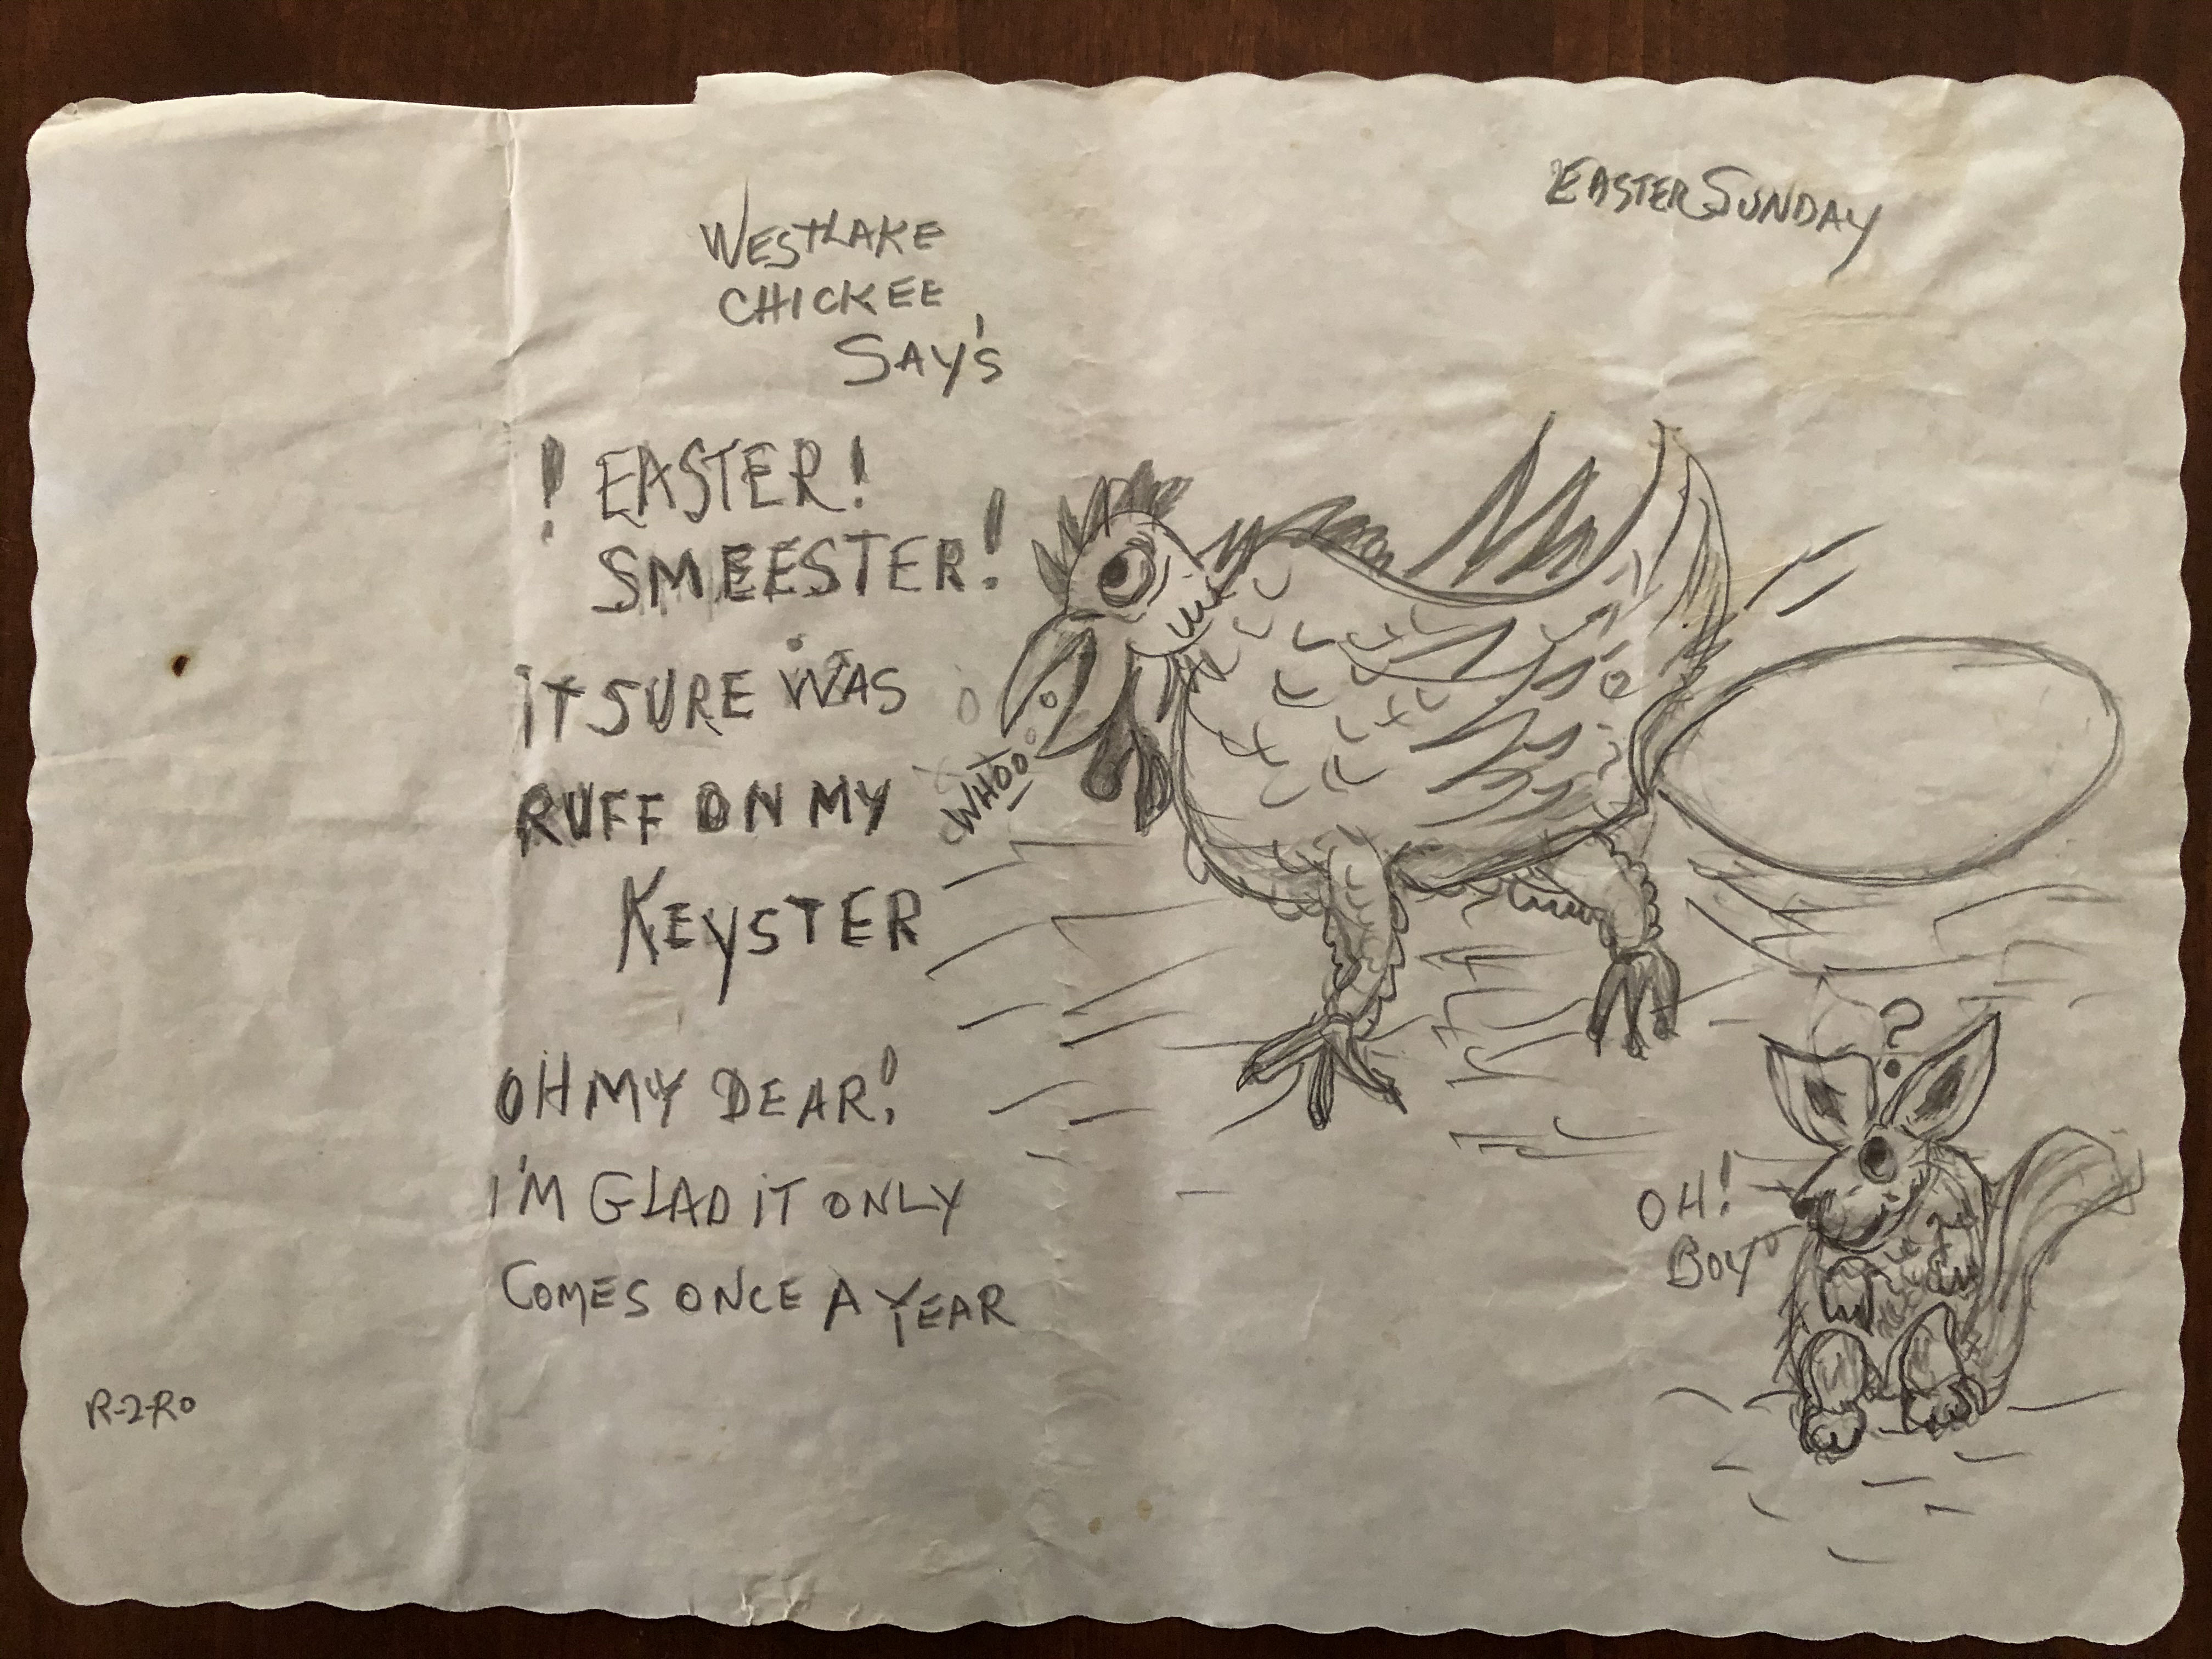 EASTER SUNDAY
WESTLAKE
CHICKEE
SAY'S
! EASTER!
SMEESTER!
IT SURE WAS
RUFF ON MY
KEYSTER
WHOO
OH MY DEAR!
I'M GLAD IT ONLY
COMES ONCE A YEAR
?
OH!
BOY
R-2-RO